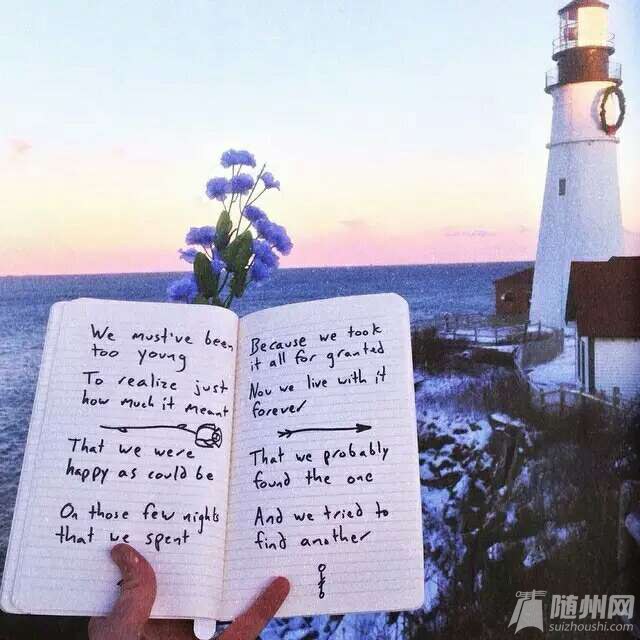 We must've been
too young
To realize just
how much it meant
That we were
happy as could be
On those few nights
that we spent
Because we took
it all for granted
Now we live with it
forever
That we probably
found the one
And we tried to
find another
随州网
suizhoushi.com